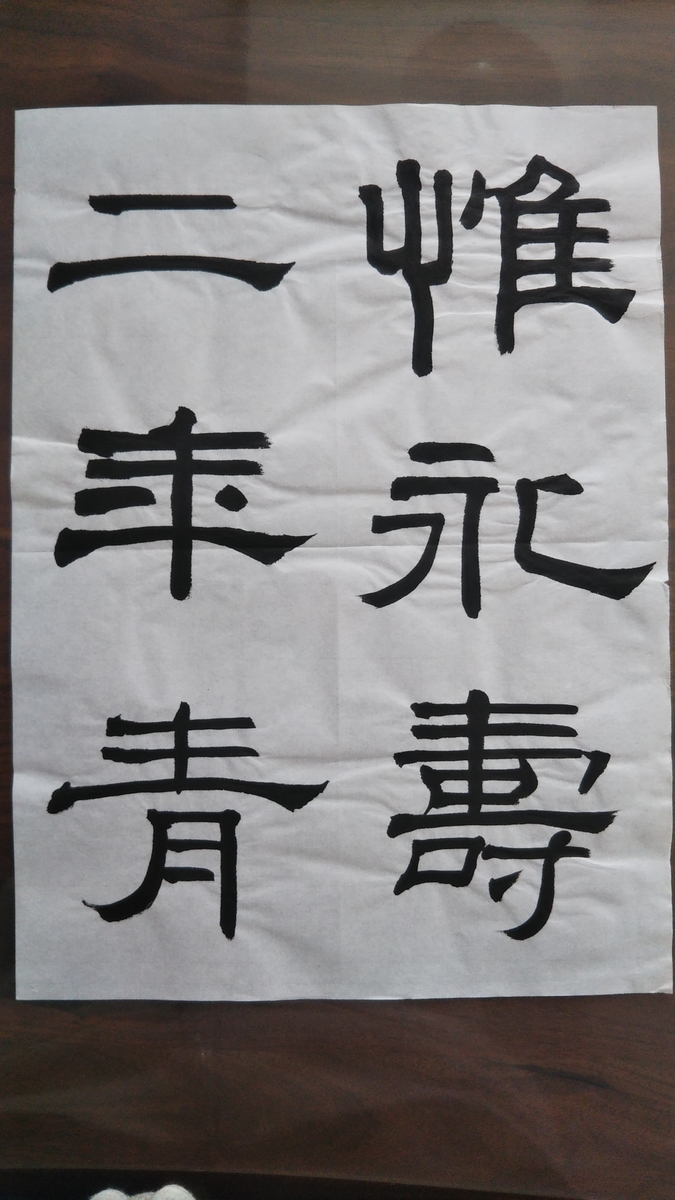 惟永壽
二年青